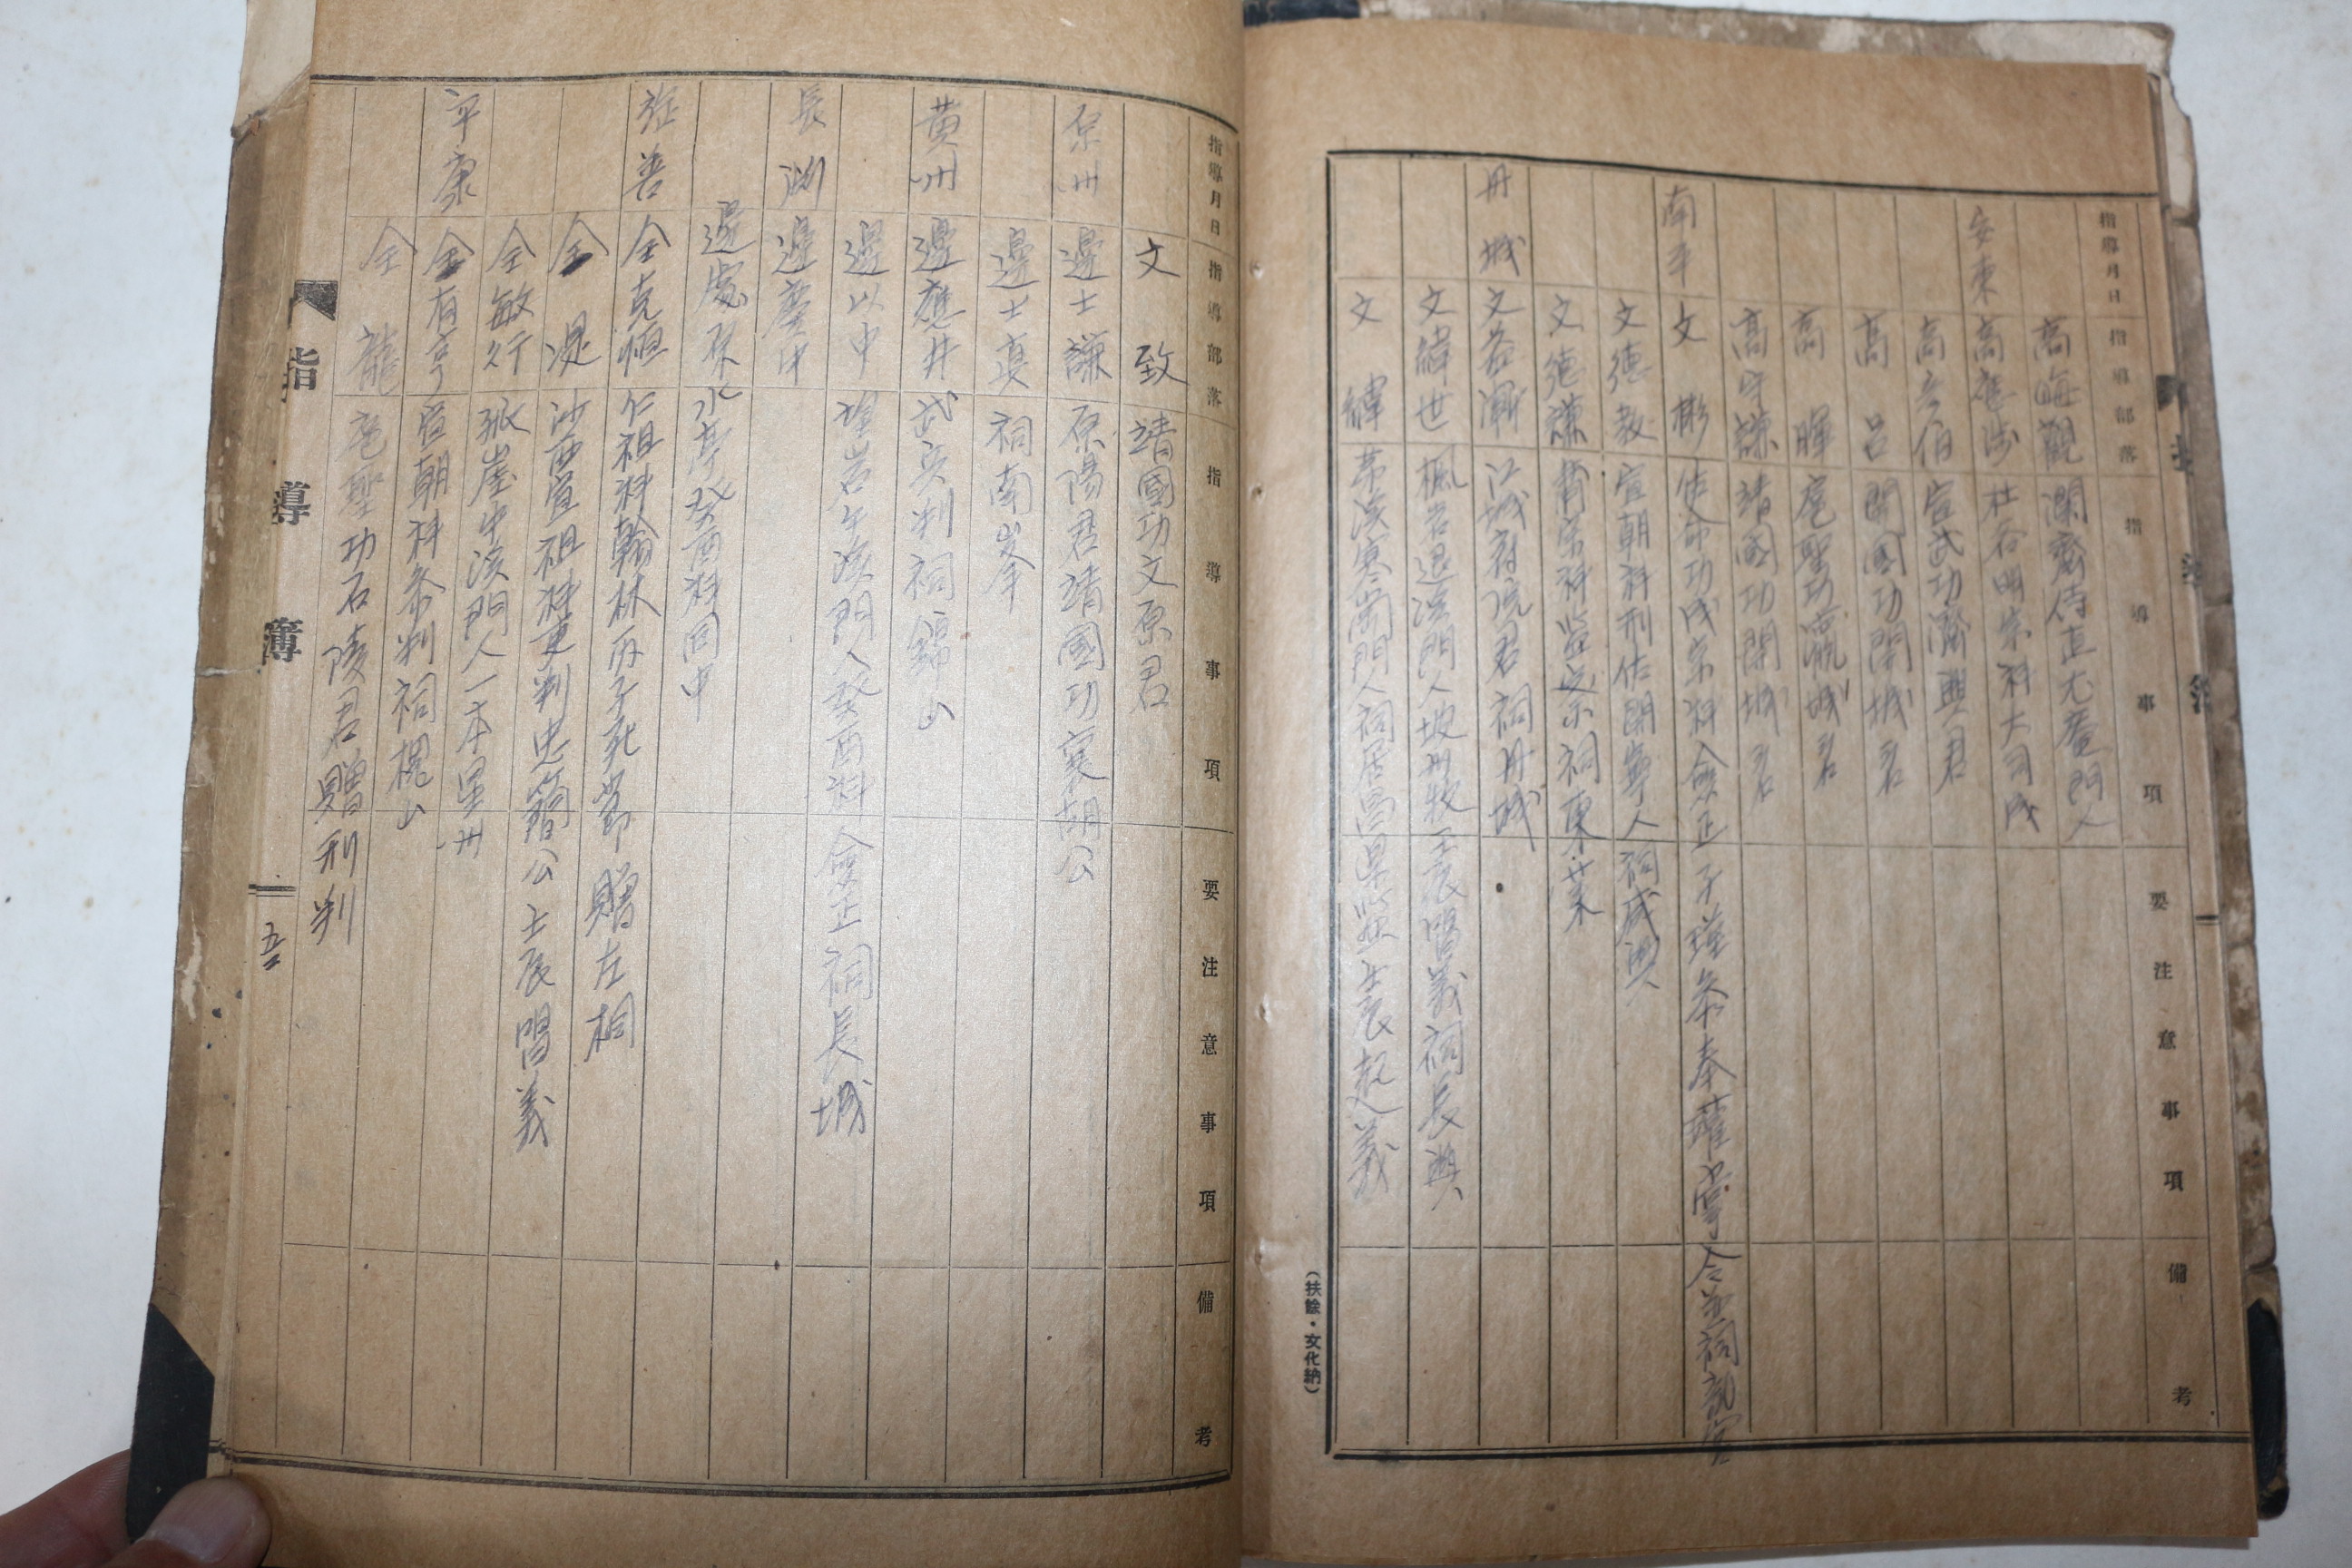 指導月日 指導部落 指導事項 要注意事項 備考
高晦觀 瀾齋侍直尤菴門人
安東 高應涉 杜谷明宗科大司成
高彦伯 宣武功濟興君
高 呂 開國功開城君
高 暉 扈聖功瀛城君
高守謙 靖國功開城君
南平 文 彬 使命功成宗科僉正子瑾參奉
文德敎 宣朝科刑佐開寧人祠咸興
文德謙 宗科 祠東萊
丹城 文益漸 江城府院君祠丹城
文緯世 楓岩退溪門人坡州牧壬辰唱義祠長興
文 緯 茅溪寒岡門人祠居昌 壬辰起義
(扶餘・文化納)
指導月日 指導部落 指導事項 要注意事項 備考
文 致 靖國功文原君
原州 邊士謙 原陽君靖國功襄胡公
邊士眞 祠南
黃州 邊應井 武兵判祠錦山
邊以中 望岩牛溪門人癸酉科僉正祠長城
長淵 邊慶中
邊處厚 水亭癸酉科同中
旌善 全克恒 仁祖科翰林丙子死節贈左
全 湜 沙西宣祖科吏判忠簡公壬辰唱義
全敏行 孤崖牛溪門人一本星州
平康 全有亨 宣朝科參判祠槐山
全 龍 扈聖功石陵君贈刑判
指導簿
五